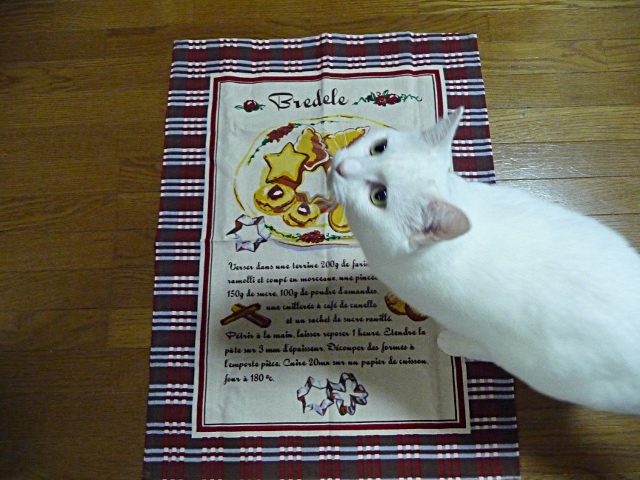 Bredele
Verser dans une terrine 200g de
ramolli et coupé en morceaux, une
150g de sucre, 100g de poudre d'amandes,
une cuillerée à café de canelle
et un sachet de sucre vanillé.
Pétrir à la main, laisser reposer 1 heure. Etendre la
pâte sur 5 mm d'épaisseur. Découper des formes à
l'emporte pièce. Cuire 20mn sur un papier de cuisson,
four à 180 °c.